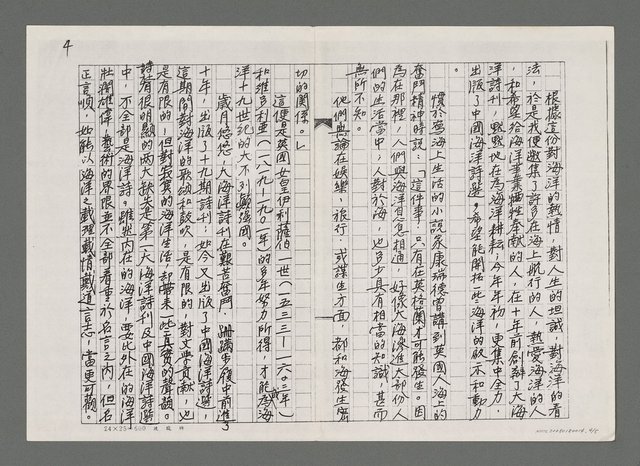 4
根據這份對海洋的熱情，對人生的坦誠，對海洋的看
法，於是我便邀集了許多在海上航行的人，熱愛海洋的人
，和希望給海洋事業犧牲奉獻的人，在十年前創辦了大海
洋詩刊，默默地在為海洋耕耘；今年年初，更集中全力，
出版了中國海洋詩選。希望能開拓一些海洋的啟示和動力
。
慣於寫海上生活的小說家康瑞德曾講到英國人海上的
奮鬥精神時說：「這件事，只有在英格蘭才可能發生。因
為在那裡，人們與海洋息息相通，好像大海滲進大部份人
們的生活當中，人對於海，也多少具有相當的知識，甚而
無所不知。
他們無論在娛樂，旅行，或謀生方面，都和海發生密
切的關係。」
這便是英國女皇伊利薩伯一世（一五三三—一六〇三年）
和維多利亞（一八一九—一九〇一年）的多年努力所得，才能成為海
洋十九世紀的大不列顛強國。
歲月悠悠，大海洋詩刊在艱苦奮鬥、蹣跚步履中前進了
十年，出版了十九期詩刊；如今又出版了中國海洋詩選，
這期間對海洋的歌頌和鼓吹，是有限的，對文學貢獻，也
是有限的，但對寂寞的海洋生活，却帶來一些真實的聲韻。
詩有很明顯的兩大缺失是第一大海洋詩刊及中國海洋詩選
中，不全部是海洋詩。雖然內在的海洋，要比外在的海洋
壯闊雄偉，藝術的界限並不全部着重於名言之內，但名
正言順，如能以海洋之載理載情載道言志，當更可觀。
24×25=600